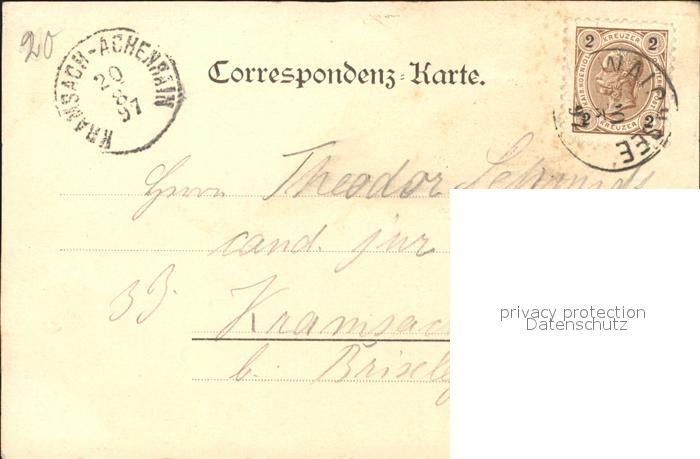 20
KRAMSACH-ACHENRAIN
20
8
97
Correspondenz-Karte.
2 KREUZER 2
2 KREUZER 2
Herrn Theodor Schmid
cand. jur
Kramsac
b. Brixleg
privacy protection
Datenschutz